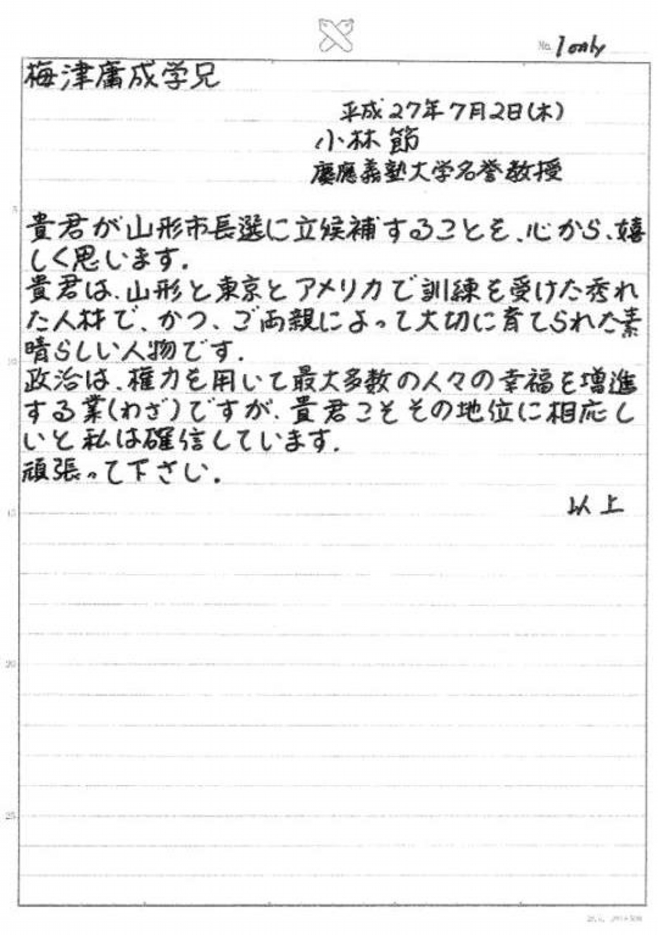 No. 1 only
梅津庸成学兄
平成27年7月2日(木)
小林節
慶應義塾大学名誉教授
5
貴君が山形市長選に立候補することを、心から、嬉
しく思います.
貴君は、山形と東京とアメリカで訓練を受けた秀れ
た人材で、かつ、ご両親によって大切に育てられた素
10
晴らしい人物です.
政治は、権力を用いて最大多数の人々の幸福を増進
する業(わざ)ですが、貴君こそその地位に相応し
いと私は確信しています.
頑張って下さい.
15
以上
20
25